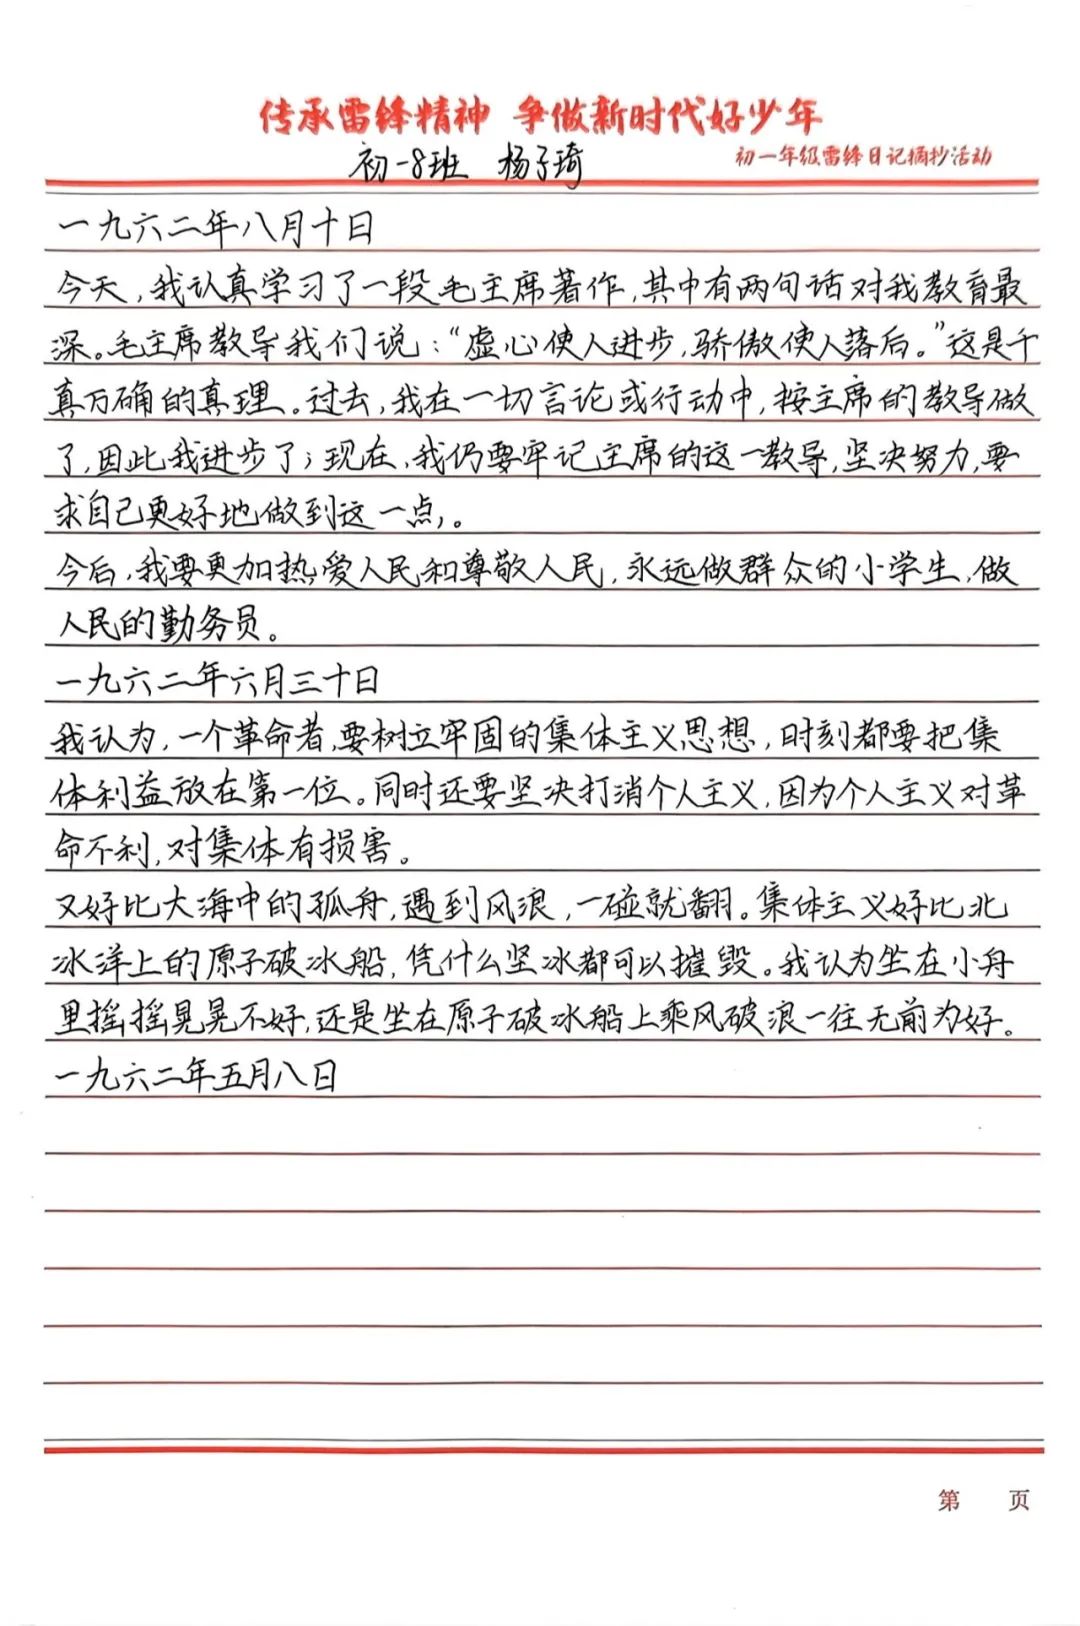 传承雷锋精神 争做新时代好少年
初一8班 杨子琦
初一年级雷锋日记摘抄活动
一九六二年八月十日
今天,我认真学习了一段毛主席著作,其中有两句话对我教育最
深。毛主席教导我们说:“虚心使人进步,骄傲使人落后。”这是千
真万确的真理。过去,我在一切言论或行动中,按主席的教导做
了,因此我进步了;现在,我仍要牢记主席的这一教导,坚决努力,要
求自己更好地做到这一点,。
今后,我要更加热爱人民和尊敬人民,永远做群众的小学生,做
人民的勤务员。
一九六二年六月三十日
我认为,一个革命者,要树立牢固的集体主义思想,时刻都要把集
体利益放在第一位。同时还要坚决打消个人主义,因为个人主义对革
命不利,对集体有损害。
又好比大海中的孤舟,遇到风浪,一碰就翻。集体主义好比北
冰洋上的原子破冰船,凭什么坚冰都可以摧毁。我认为坐在小舟
里摇摇晃晃不好,还是坐在原子破冰船上乘风破浪一往无前为好。
一九六二年五月八日
第 页